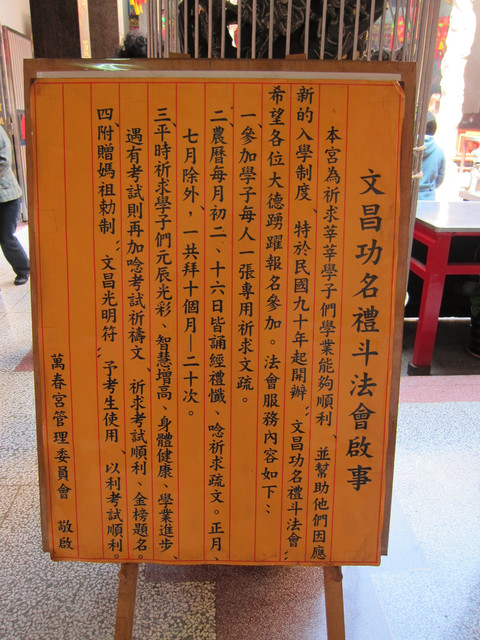 文昌功名禮斗法會啟事
本宮為祈求莘莘學子們學業能夠順利、並幫助他們因應
新的入學制度、特於民國九十年起開辦〝文昌功名禮斗法會〞
希望各位大德踴躍報名參加。法會服務內容如下:
一、參加學子每人一張專用祈求文疏。
二、農曆每月初二、十六日皆誦經禮懺、唸祈求疏文。正月、
七月除外,一共拜十個月—二十次。
三、平時祈求學子們元辰光彩、智慧增高、身體健康、學業進步、
遇有考試則再加唸考試祈禱文、祈求考試順利、金榜題名。
四、附贈媽祖勅制〝文昌光明符〞予考生使用、以利考試順利。
萬春宮管理委員會 敬啟